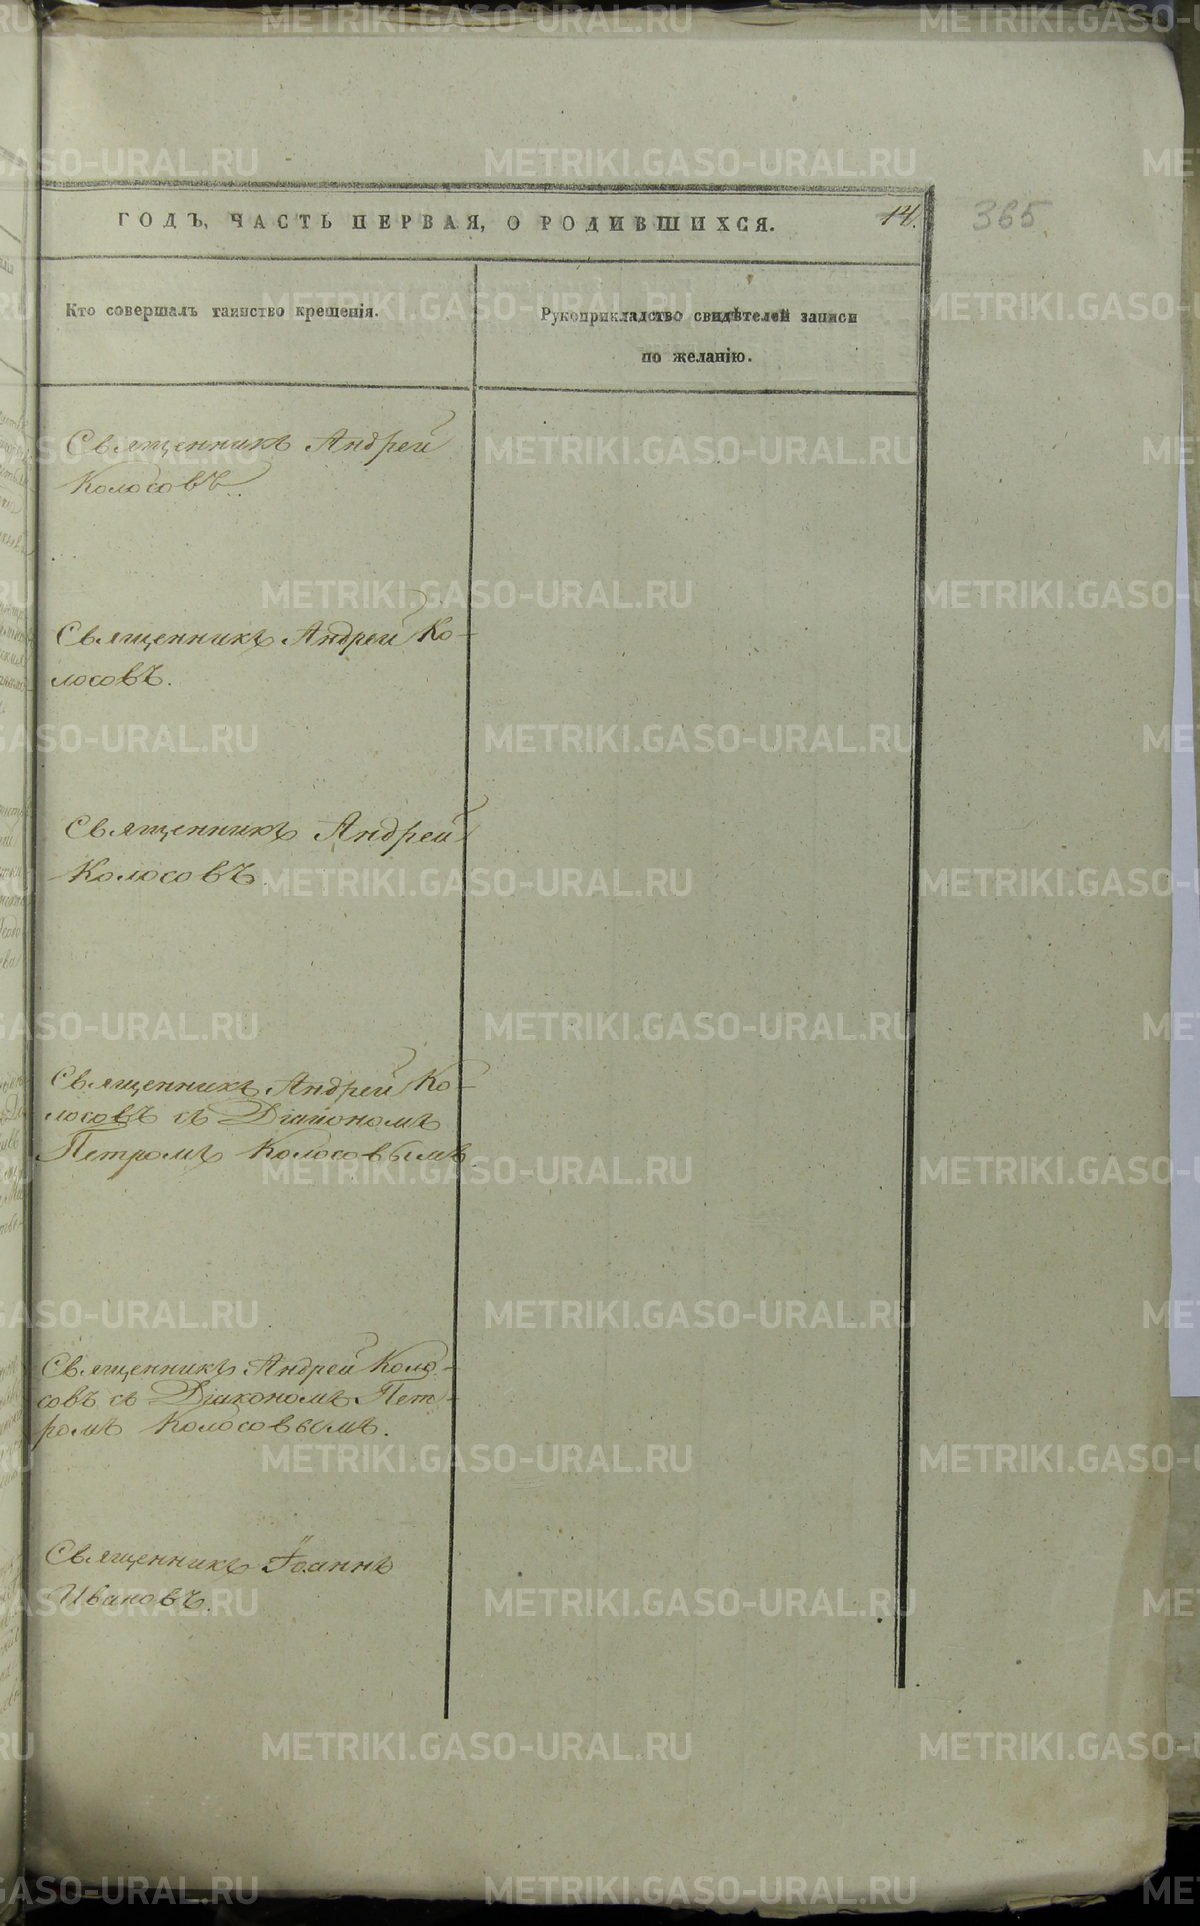 ГОДЪ, ЧАСТЬ ПЕРВАЯ, О РОДИВШИХСЯ.
14.
365
Кто совершалъ таинство крещенія.
Рукоприкладство свидѣтелей записи
по желанію.
Священникъ Андрей
Колосовъ.
Священникъ Андрей Ко-
лосовъ.
Священникъ Андрей
Колосовъ.
Священникъ Андрей Ко-
лосовъ съ Діакономъ
Петромъ Колосовымъ
Священникъ Андрей Коло-
совъ съ Діакономъ Пет-
ромъ Колосовымъ.
Священникъ Іоаннъ
Ивановъ.
METRIKI.GASO-URAL.RU